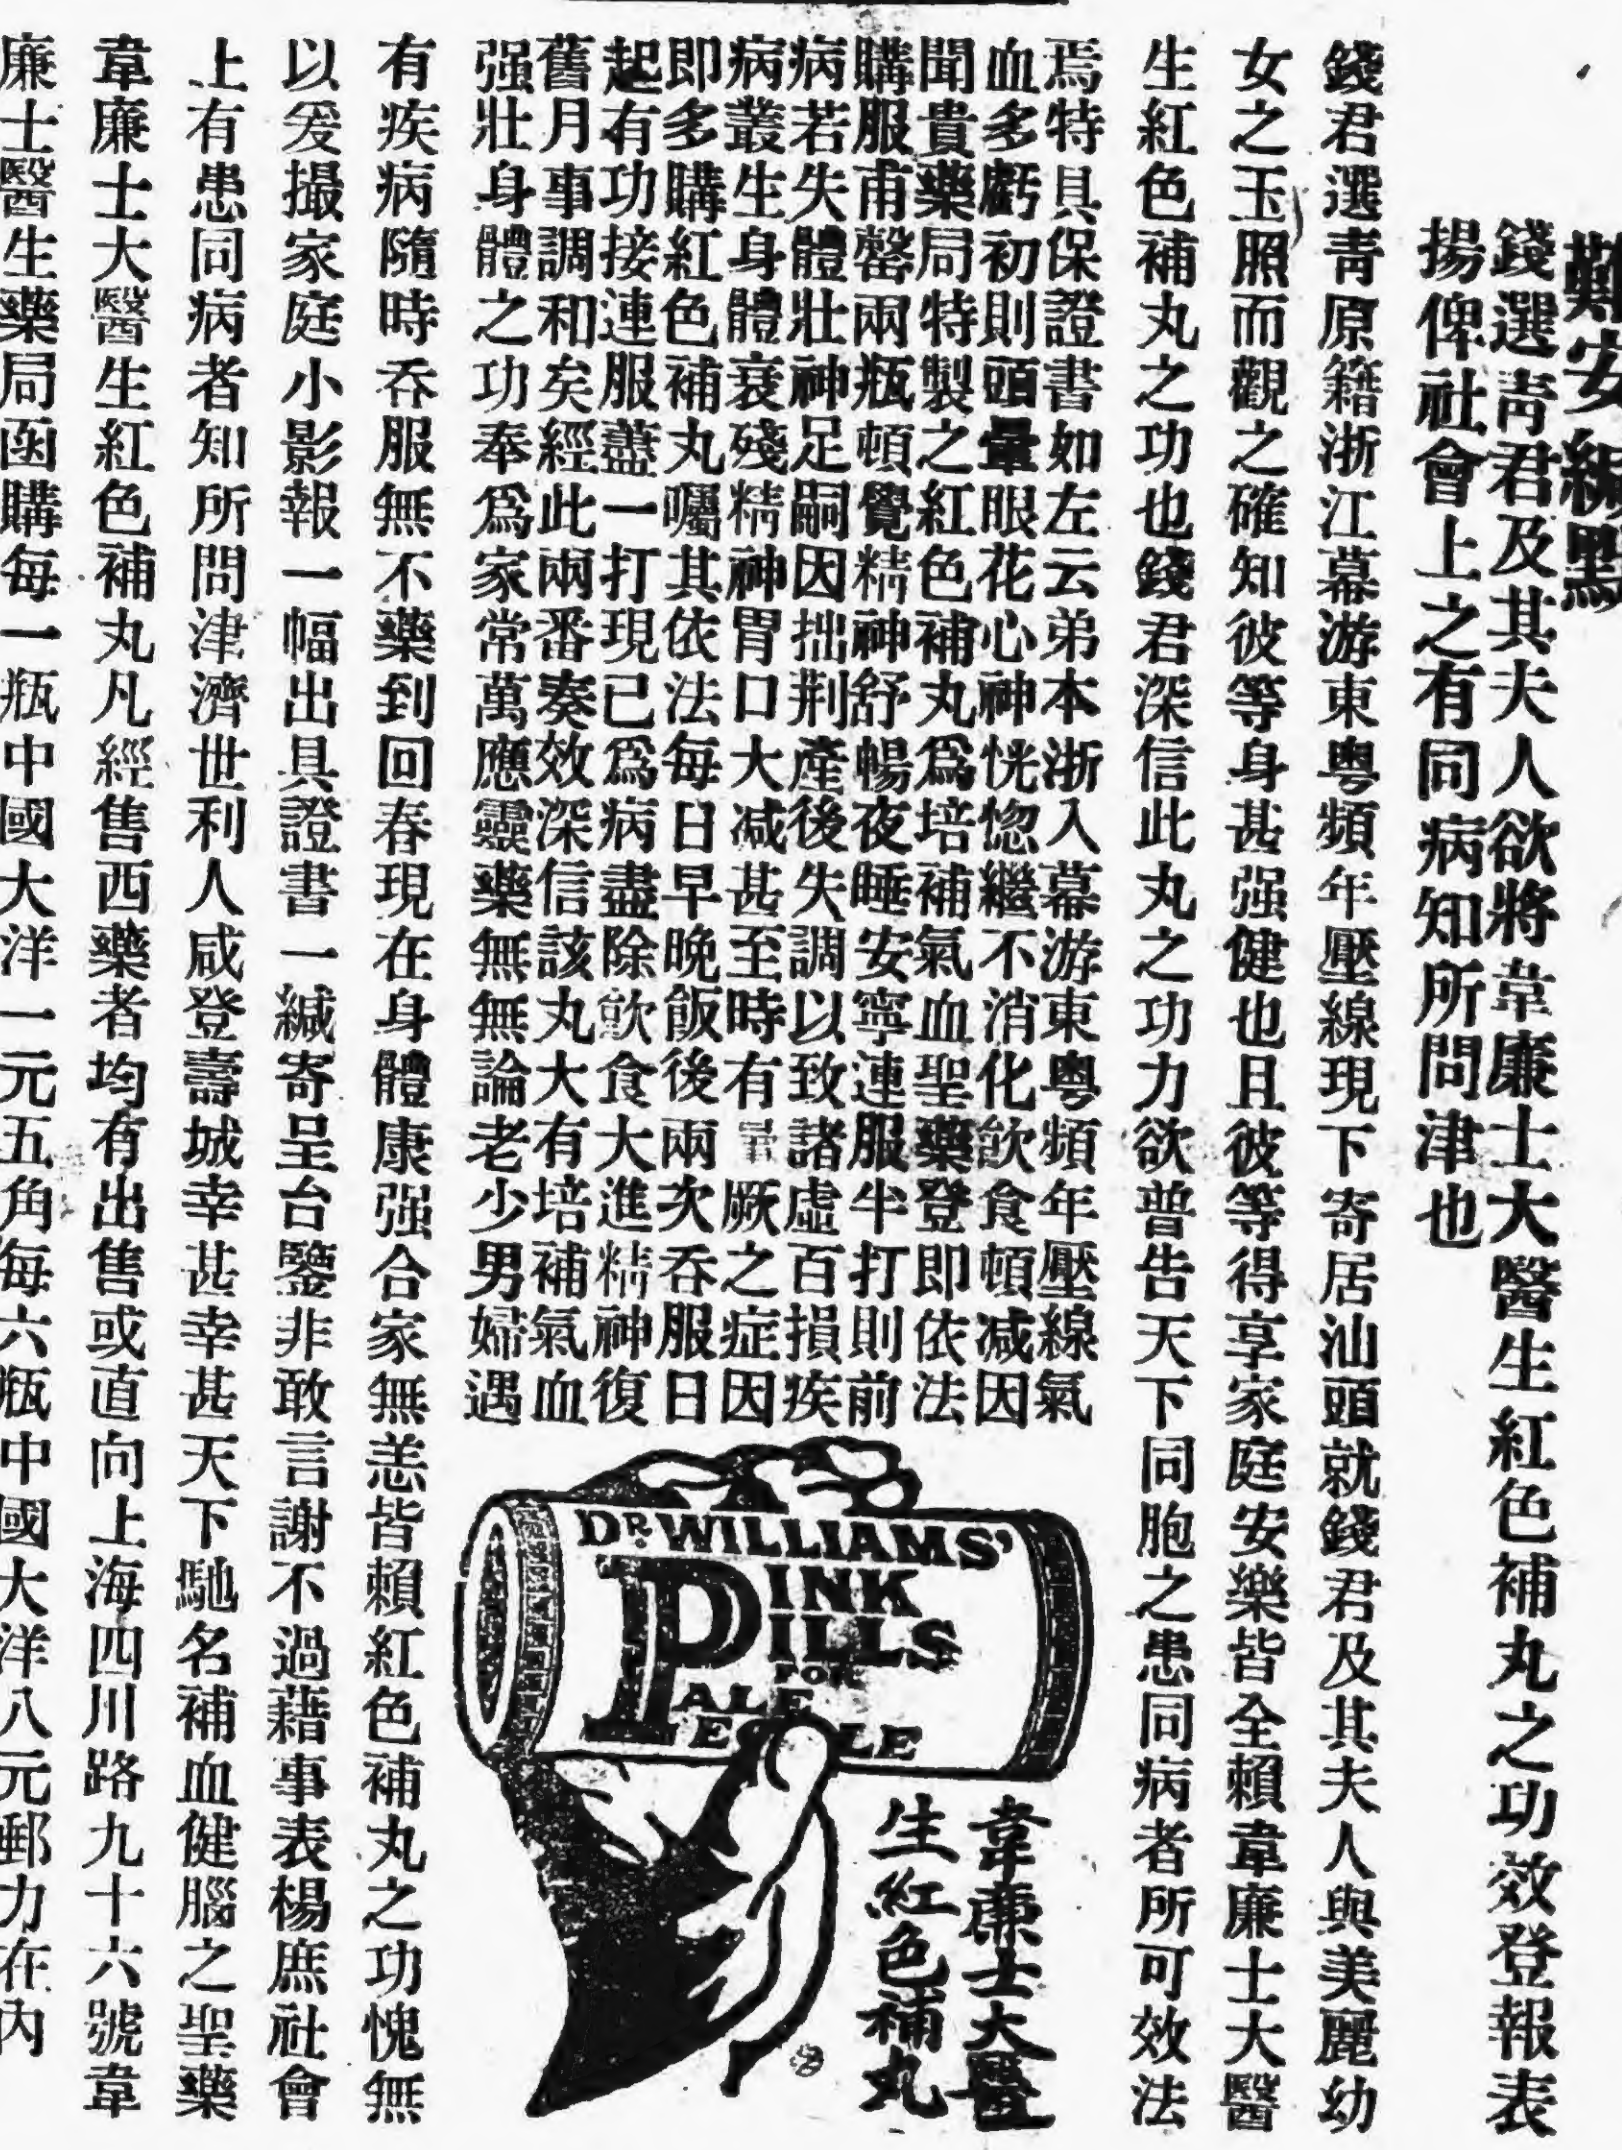 難安緘默
錢選靑君及其夫人欲將韋廉士大醫生紅色補丸之功效登報表
揚俾社會上之有同病知所問津也
錢君選靑原籍浙江幕游東粵頻年壓線現下寄居汕頭就錢君及其夫人與美麗幼
女之玉照而觀之確知彼等身甚强健也且彼等得享家庭安樂皆全賴韋廉士大醫
生紅色補丸之功也錢君深信此丸之功力欲普告天下同胞之患同病者所可效法
焉特具保證書如左云弟本浙入幕游東粵頻年壓線氣
血多虧初則頭暈眼花心神恍惚繼不消化飮食頓減因
聞貴藥局特製之紅色補丸爲培補氣血聖藥登即依法
購服甫罄兩瓶頓覺精神舒暢夜睡安寧連服半打則前
病若失體壯神足嗣因拙荆產後失調以致諸虛百損疾
病叢生身體衰殘精神胃口大減甚至時有暈厥之症因
即多購紅色補丸囑其依法每日早晚飯後兩次吞服日
起有功接連服蓋一打現已爲病盡除飮食大進精神復
舊月事調和矣經此兩番奏效深信該丸大有培補氣血
强壯身體之功奉爲家常萬應靈藥無無論老少男婦遇
有疾病隨時吞服無不藥到回春現在身體康强合家無恙皆賴紅色補丸之功愧無
以爰撮家庭小影報一幅出具證書一緘寄呈台鑒非敢言謝不過藉事表楊庶社會
上有患同病者知所問津濟世利人咸登壽城幸甚幸甚天下馳名補血健腦之聖藥
韋廉士大醫生紅色補丸凡經售西藥者均有出售或直向上海四川路九十六號韋
廉士醫生藥局函購每一瓶中國大洋一元五角每六瓶中國大洋八元郵力在內
DR. WILLIAMS'
PINK
PILLS
FOR
PALE
PEOPLE
韋廉士大醫
生紅色補丸